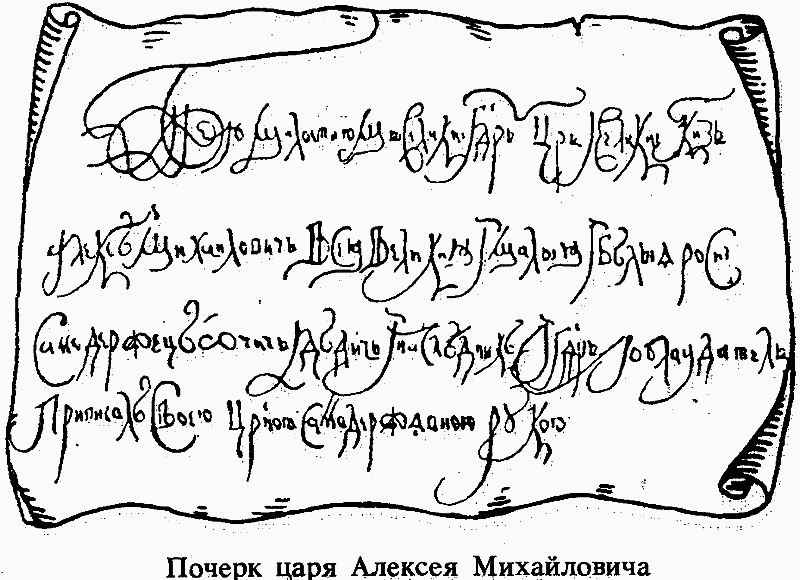 милостию мы великии гдрь црь великии кнзь
Алексѣй Михаиловичь всея великия малыя бѣлыя росиі
Самодержецъ отчичь дѣдичь наслѣдникъ гдрь обладатель
Приписалъ своею самодержавною рукою
Почерк царя Алексея Михайловича